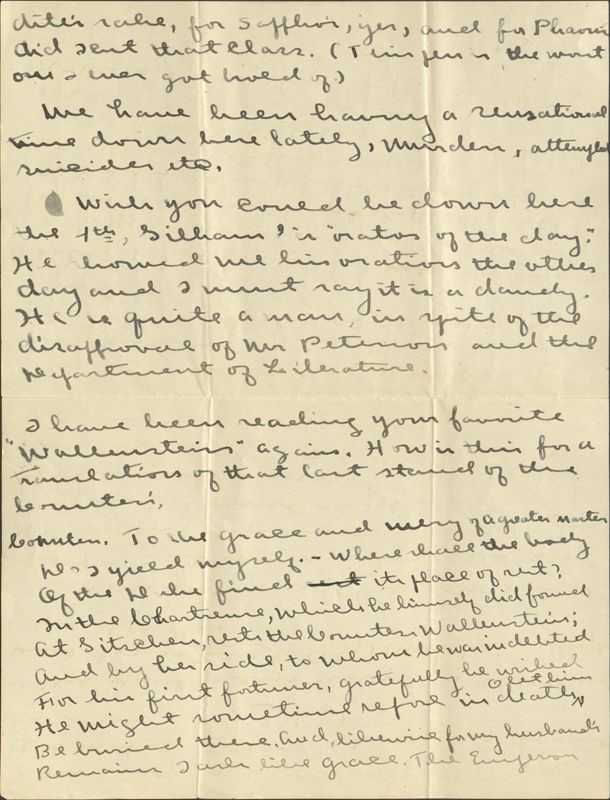 dite's sake, for Sappho's, yes, and for Phaon's
did I cut that class. (This pen is the worst
one I ever got hold of)
We have been having a sensational
time down here lately, Murder, attempted
suicides etc.
Wish you could be down here
the 4th, Gilham's is "orator of the day."
He showed me his oration the other
day and I must say it is a dandy.
He is quite a man, in spite of the
disapproval of Mr Peterson and the
Department of Literature.
I have been reading your favorite
"Wallenstein" again. How is this for a
translation of that last stand of the
Countess',
Countess. To the grace and mercy of a greater master
Do I yield myself. - Where shall the body
Of the Duke find its place of rest?
In the Chartreuse, which he himself did found
At Gitschen, rests the Countess Wallenstein;
And by her side, to whom he was indebted
For his first fortunes, gratefully he wished
He might sometime repose in death, O let him
Be buried there. And, likewise for my husband's
Remains I ask like grace. The Emperor